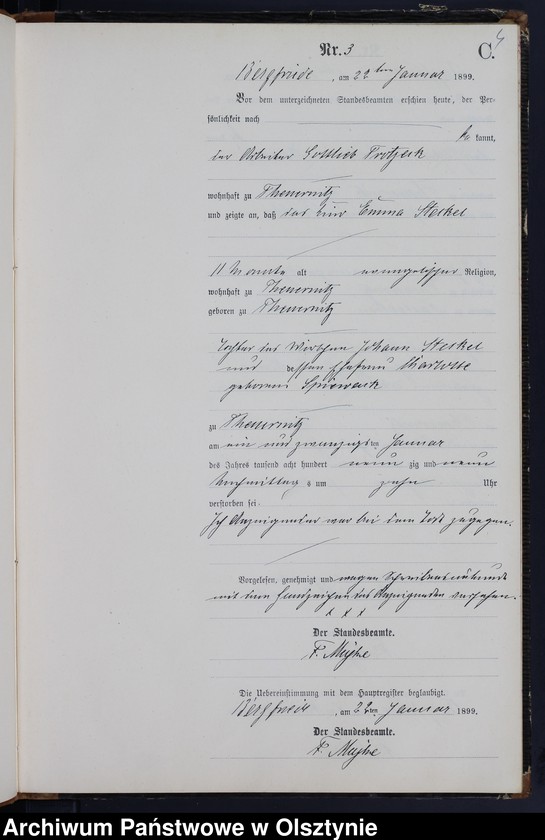 4
Nr. 3
C.
Bergfriede, am 22ten Januar 1899.
Vor dem unterzeichneten Standesbeamten erschien heute, der Per-
sönlichkeit nach
kannt,
der Arbeiter Gottlieb
wohnhaft zu Theuernitz
und zeigte an, daß das Kind Emma Steckel
11 Monate alt evangelischer Religion,
wohnhaft zu Theuernitz
geboren zu Theuernitz
Tochter des Johann Steckel
und dessen Ehefrau Charlotte
geborene
zu Theuernitz
am ein und zwanzigsten Januar
des Jahres tausend acht hundert neun zig und neun
Nachmittags um zehn Uhr
verstorben sei.
Ich Anzeigender war bei dem Tode zugegen.
Vorgelesen, genehmigt und wegen Schreibensunkunde
mit dem Handzeichen des Anzeigenden versehen.
x x x
Der Standesbeamte.
F.
Die Uebereinstimmung mit dem Hauptregister beglaubigt.
Bergfriede, am 22ten Januar 1899.
Der Standesbeamte.
F.
Archiwum Państwowe w Olsztynie